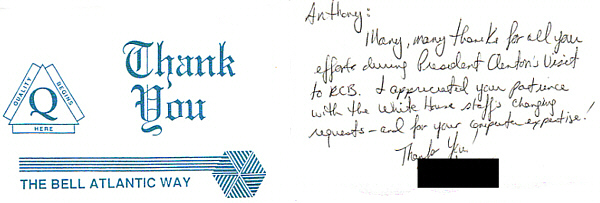 Thank
You
QUALITY BEGINS
Q
HERE
THE BELL ATLANTIC WAY
Anthony:
Many, many thanks for all your
efforts during President Clinton's Visit
to RCB. I appreciated your patience
with the White House staff's changing
requests - and for your computer expertise!
Thank You,